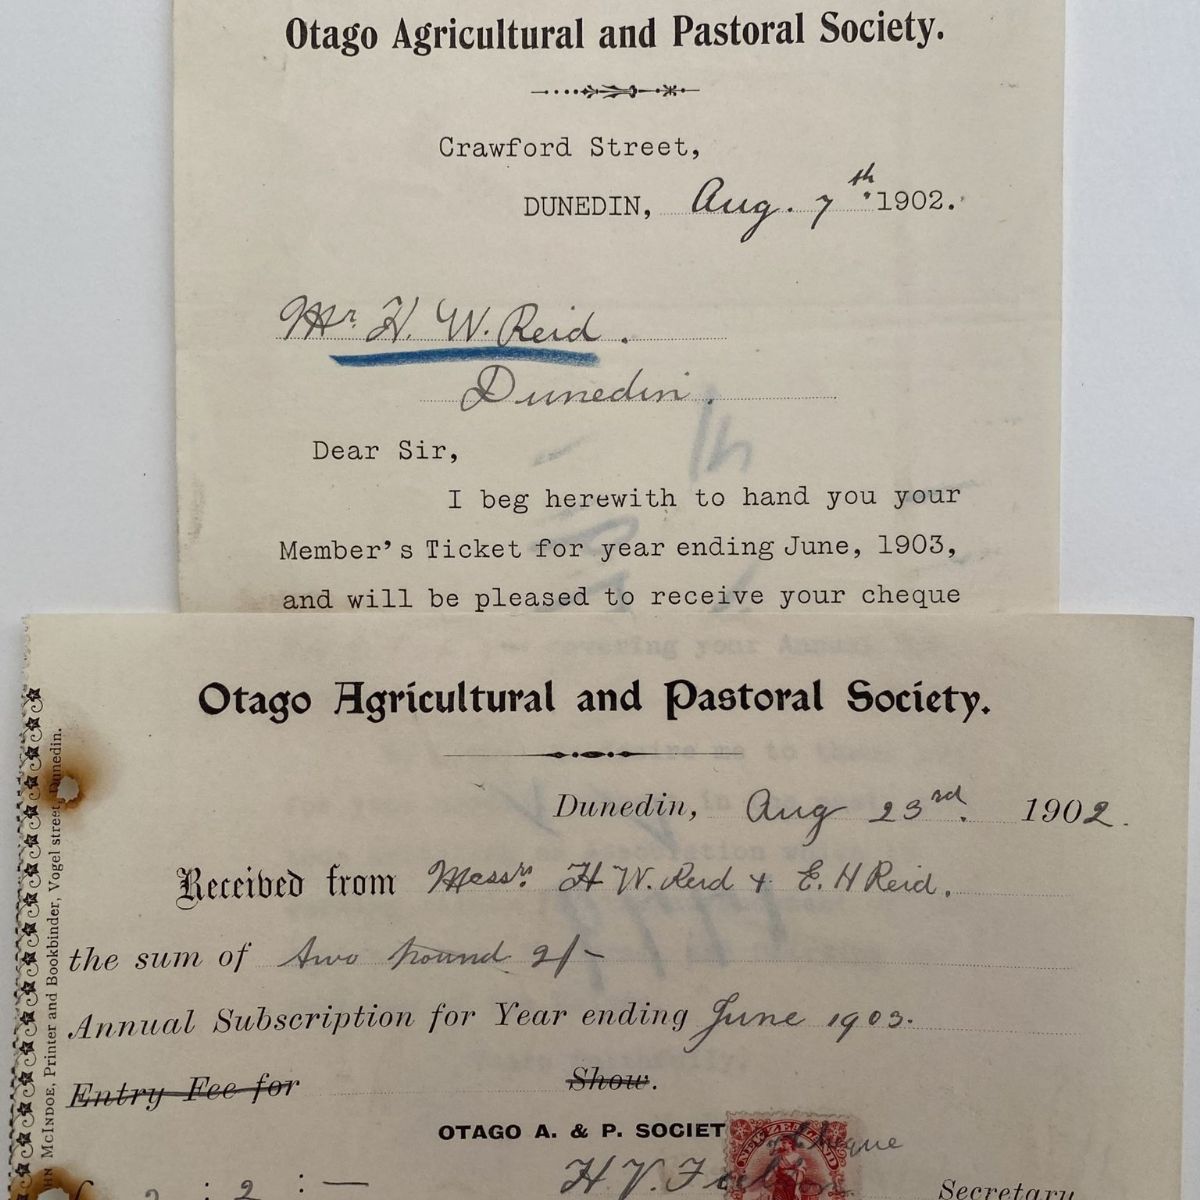 Otago Agricultural and Pastoral Society.
Crawford Street,
DUNEDIN, Aug. 7th 1902.
Mr. H. W. Reid.
Dunedin.
Dear Sir,
I beg herewith to hand you your
Member's Ticket for year ending June, 1903,
and will be pleased to receive your cheque
covering your Annual
Otago Agricultural and Pastoral Society.
Dunedin, Aug 23rd. 1902.
Received from Messrs. H W. Reid & E. H Reid.
the sum of two pound 2/-
Annual Subscription for Year ending June 1903.
Entry Fee for Show.
OTAGO A. & P. SOCIET
NEW ZEALAND
cheque
H. V.
Secretary
£ 2 : 2 : —
McINDOE, Printer and Bookbinder, Vogel street, Dunedin.